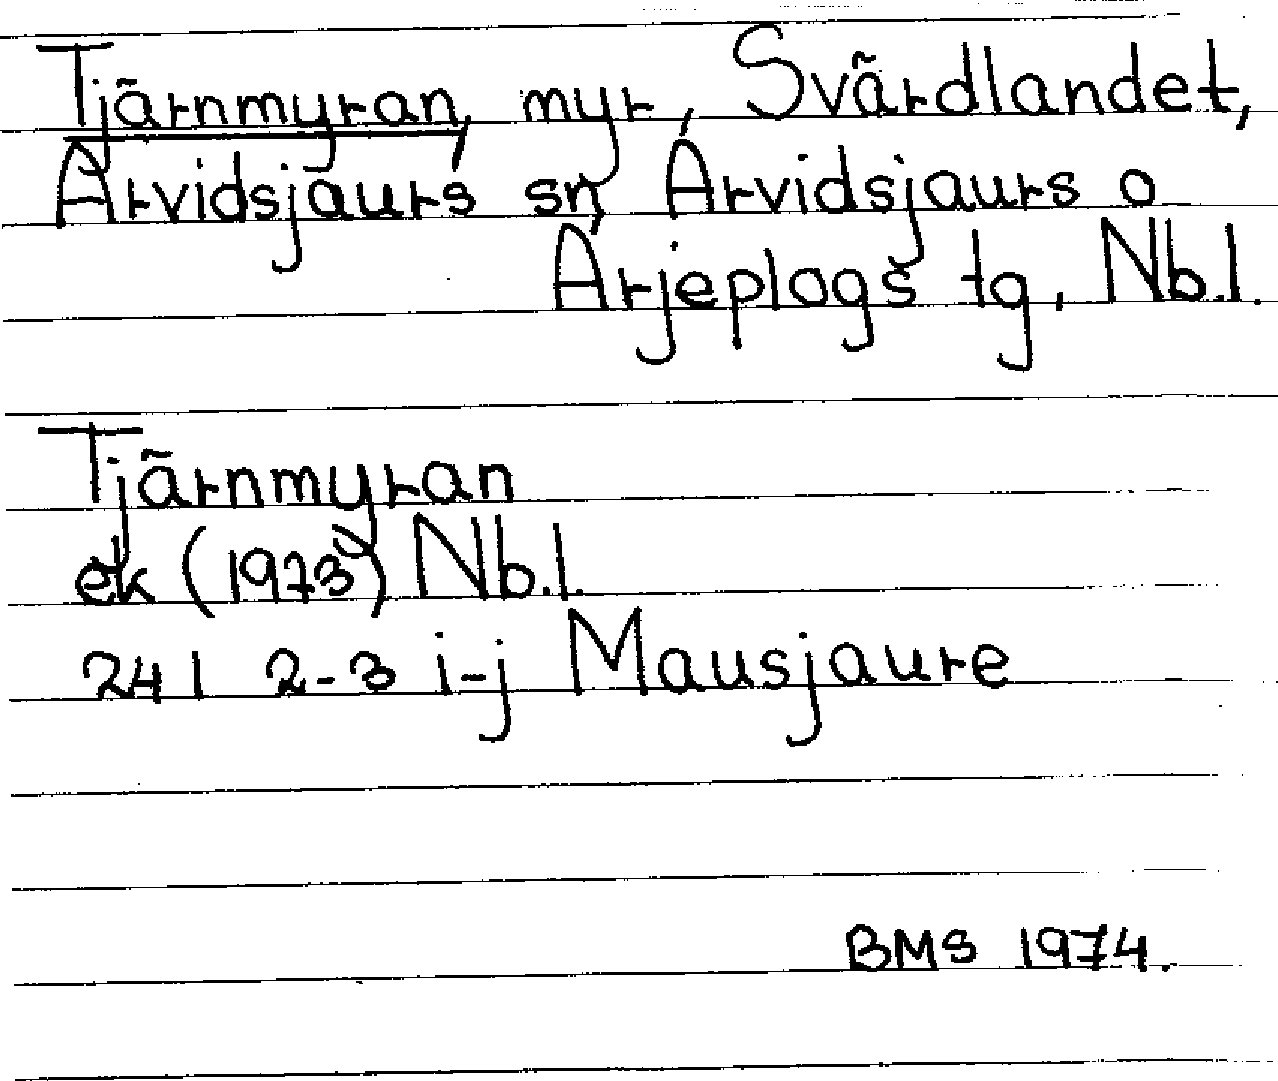 Tjärnmyran, myr, Svärdlandet,
Arvidsjaurs sn, Arvidsjaurs o
Arjeplogs tg, Nb.l.
Tjärnmyran
ek (1973) Nb.l.
24 I 2-3 i-j Mausjaure
BMS 1974.